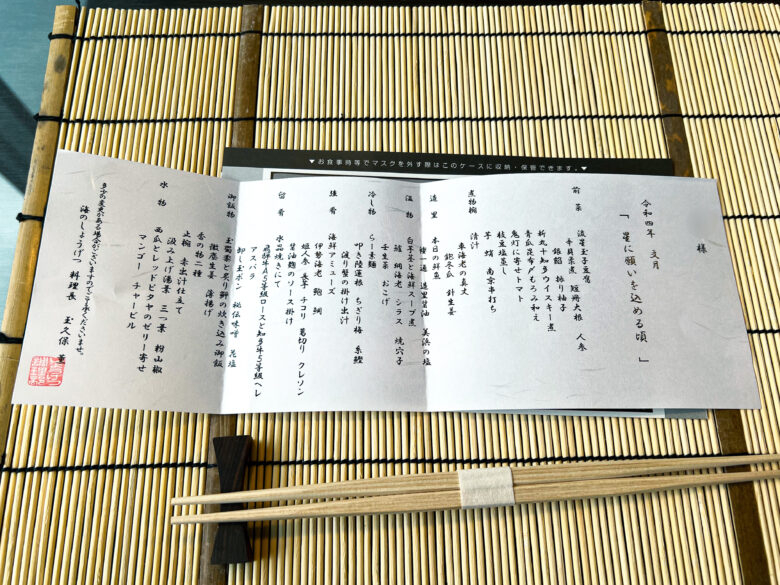 ▼お食事時等でマスクを外す際はこのケースに収納・保管できます。▼
様
令和四年 文月
「星に願いを込める頃」
前菜
流星玉子豆腐
辛貝柔煮 短冊大根 人参
銀餡 振り柚子
祈丸十知多ウイスキー煮
青瓜昆布〆もろみ和え
鬼灯に寄せトマト
枝豆塩蒸し
芋蛸 南京串打ち
煮物椀
清汁
車海老の真丈
鮑冬瓜 針生姜
造里
本日の鮮魚
造里醤油 美浜の塩
温物
白芋茎と海鮮スープ煮
鱧 網海老 シラス 焼穴子
壬生菜 おこげ
冷し物
らー素麺
叩き陸蓮根 ちぎり梅 糸鰹
渡り蟹の掛け出汁
強肴
海鮮アミューズ
伊勢海老 鮑 鯛
姫人参 長芋 チコリ 葛切り クレソン
醤油麹のソース掛け
留肴
水晶焼きにて
飛騨牛A5等級ロースと知多牛5等級ヘレ
アスパラ
卸し玉ポン 秘伝味噌 花塩
御飯物
玉蜀黍と炙り鱧の炊き込み御飯
微塵生姜 薄揚げ
香の物二種
止椀 赤出汁仕立て
汲み上げ湯葉 三つ葉 粉山椒
水物
西瓜とレッドピタヤのゼリー寄せ
マンゴー チャービル
多少の変更がある場合がございますのでご了承くださいませ。
海のしょうげつ 料理長 玉久保 薫